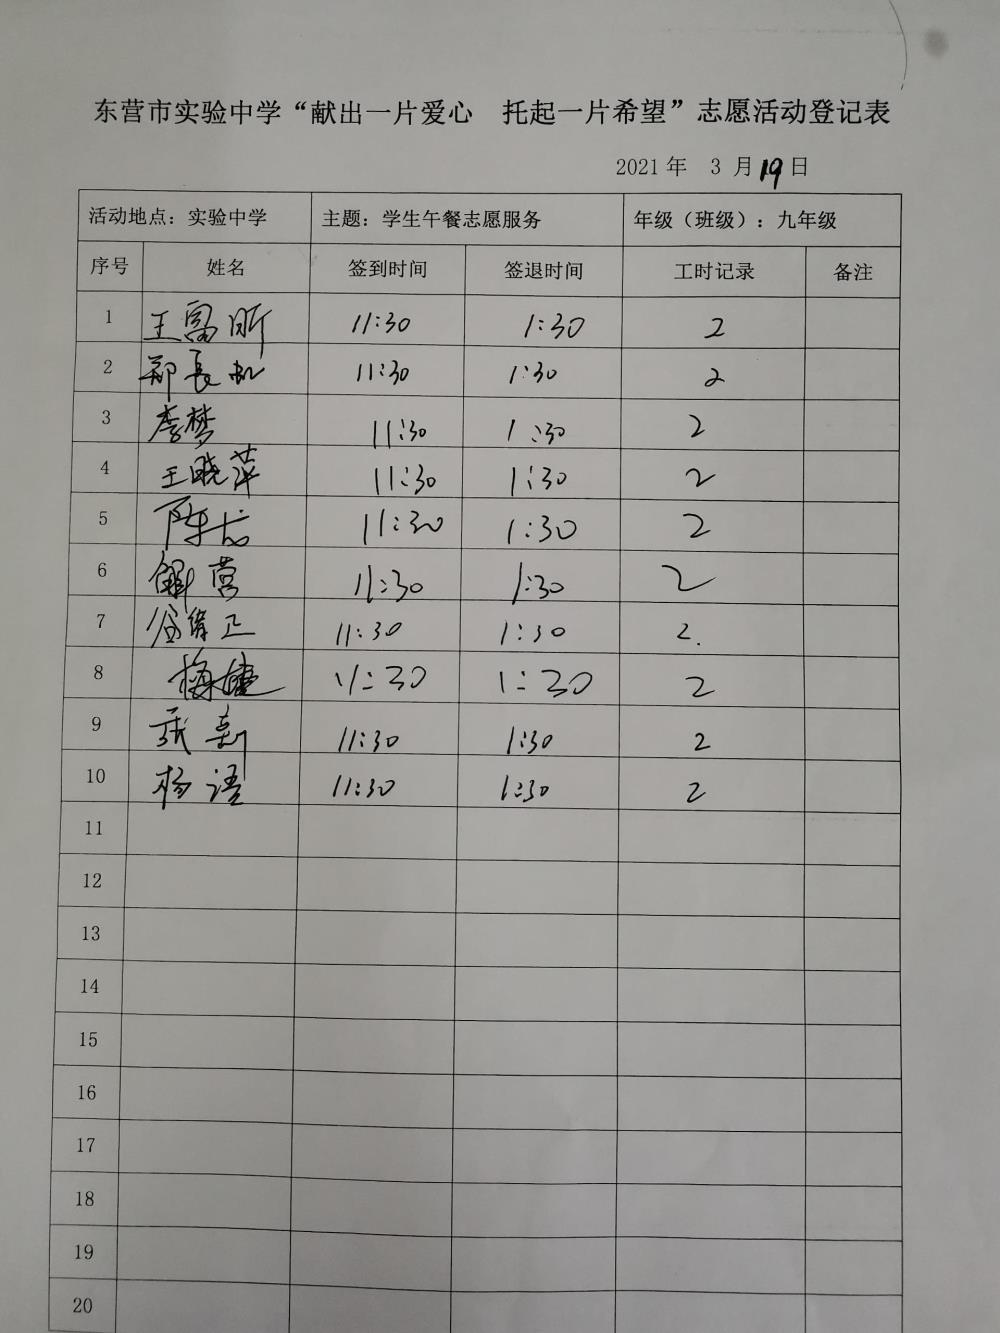 东营市实验中学“献出一片爱心 托起一片希望”志愿活动登记表
2021年 3月19日
活动地点：实验中学 主题：学生午餐志愿服务 年级（班级）：九年级
序号 姓名 签到时间 签退时间 工时记录 备注
1 王富昕 11:30 1:30 2
2 郑长 11:30 1:30 2
3 李梦 11:30 1:30 2
4 王晓萍 11:30 1:30 2
5 陈龙 11:30 1:30 2
6 解营 11:30 1:30 2
7 正 11:30 1:30 2.
8 梅 11:30 1:30 2
9 张新 11:30 1:30 2
10 杨语 11:30 1:30 2
11
12
13
14
15
16
17
18
19
20